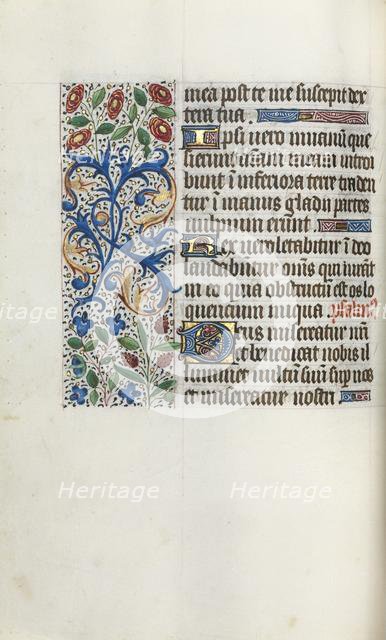 mea post te me suscepit dex
tera tua
Ipsi uero in uanū que
sierunt aīam meam introi
bunt ī inferiora terre traden
tur ī manus gladii partes
uulpium erunt
Rex uero letabitur ī deo
laudabitur om̄is qui iurāt
in eo quia obstructū est os lo
quentium iniqua psalm9
Deus misereatur nr̄i
et benedicat nobis il
luminet uultū suū sup nos
et misereatur nostri
Heritage
Heritage
Heritage
Heritage